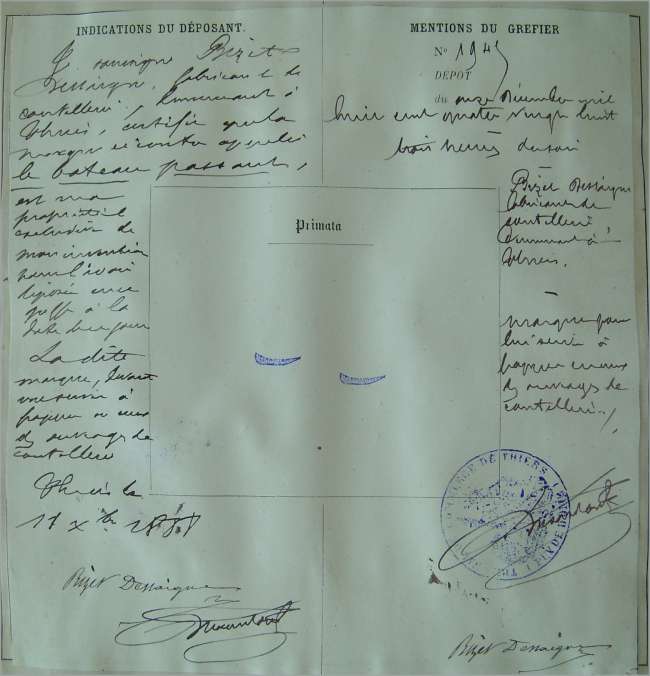 INDICATIONS DU DÉPOSANT.
Je soussigné Bizet
Dessaigne, fabricant de
coutellerie, demeurant à
Thiers, certifie que la
marque ci contre appelée
le bateau passant,
est ma
propriété
exclusive de
mon invention
pour l'avoir
déposée au
greffe à la
date de ce jour
La dite
marque, devant
me servir à
frapper
des ouvrages de
coutellerie
Thiers le
11 Xbre 1888
Bizet Dessaigne
MENTIONS DU GREFIER
No 1945
DÉPOT
du onze Décembre mil
huit cent quatre vingt huit
trois heures du soir
Primata
Bizet Dessaigne
fabricant de
coutellerie
demeurant à
Thiers.
marque pour
lui servir à
frapper
des ouvrages de
coutellerie
DE THIERS
Bizet Dessaigne